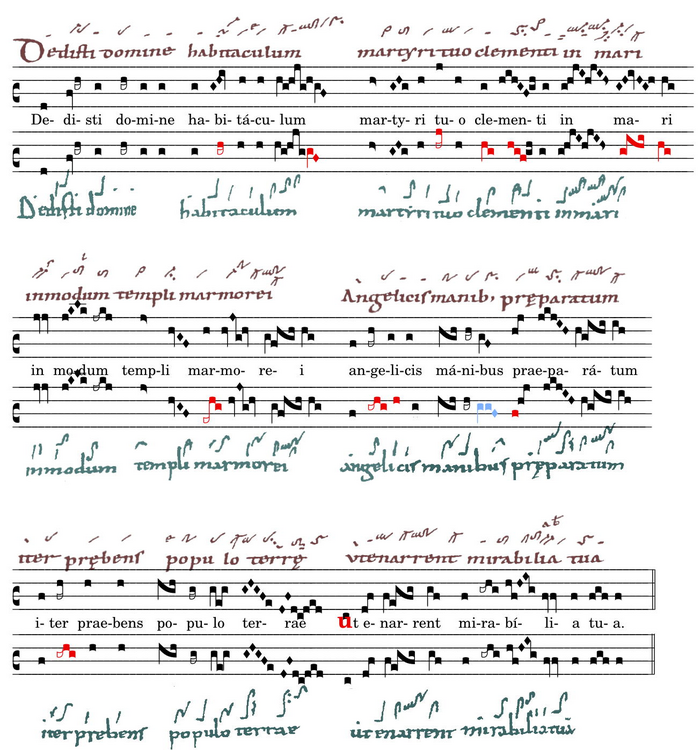 Dedisti domine habitaculum martyri tuo clementi in mari
De- di- sti do-mi-ne ha- bi- tá-cu- lum mar-ty- ri tu- o cle-men- ti in ma- ri
Dedisti domine habitaculum martyri tuo clementi in mari
in modum templi marmorei Angelicis manib, pręparatum
in mo-dum temp-li mar-mo- re- i an-ge-li-cis má-ni-bus prae-pa- rá- tum
in modum templi marmorei angelicis manibus pręparatum
iter prębens popu lo terrę vtenarrent mirabilia tua
i- ter prae-bens po- pu- lo ter- rae ut e-nar- rent mi-ra- bí- li- a tu- a.
iter prębens populo terrae ut enarrent mirabilia tua